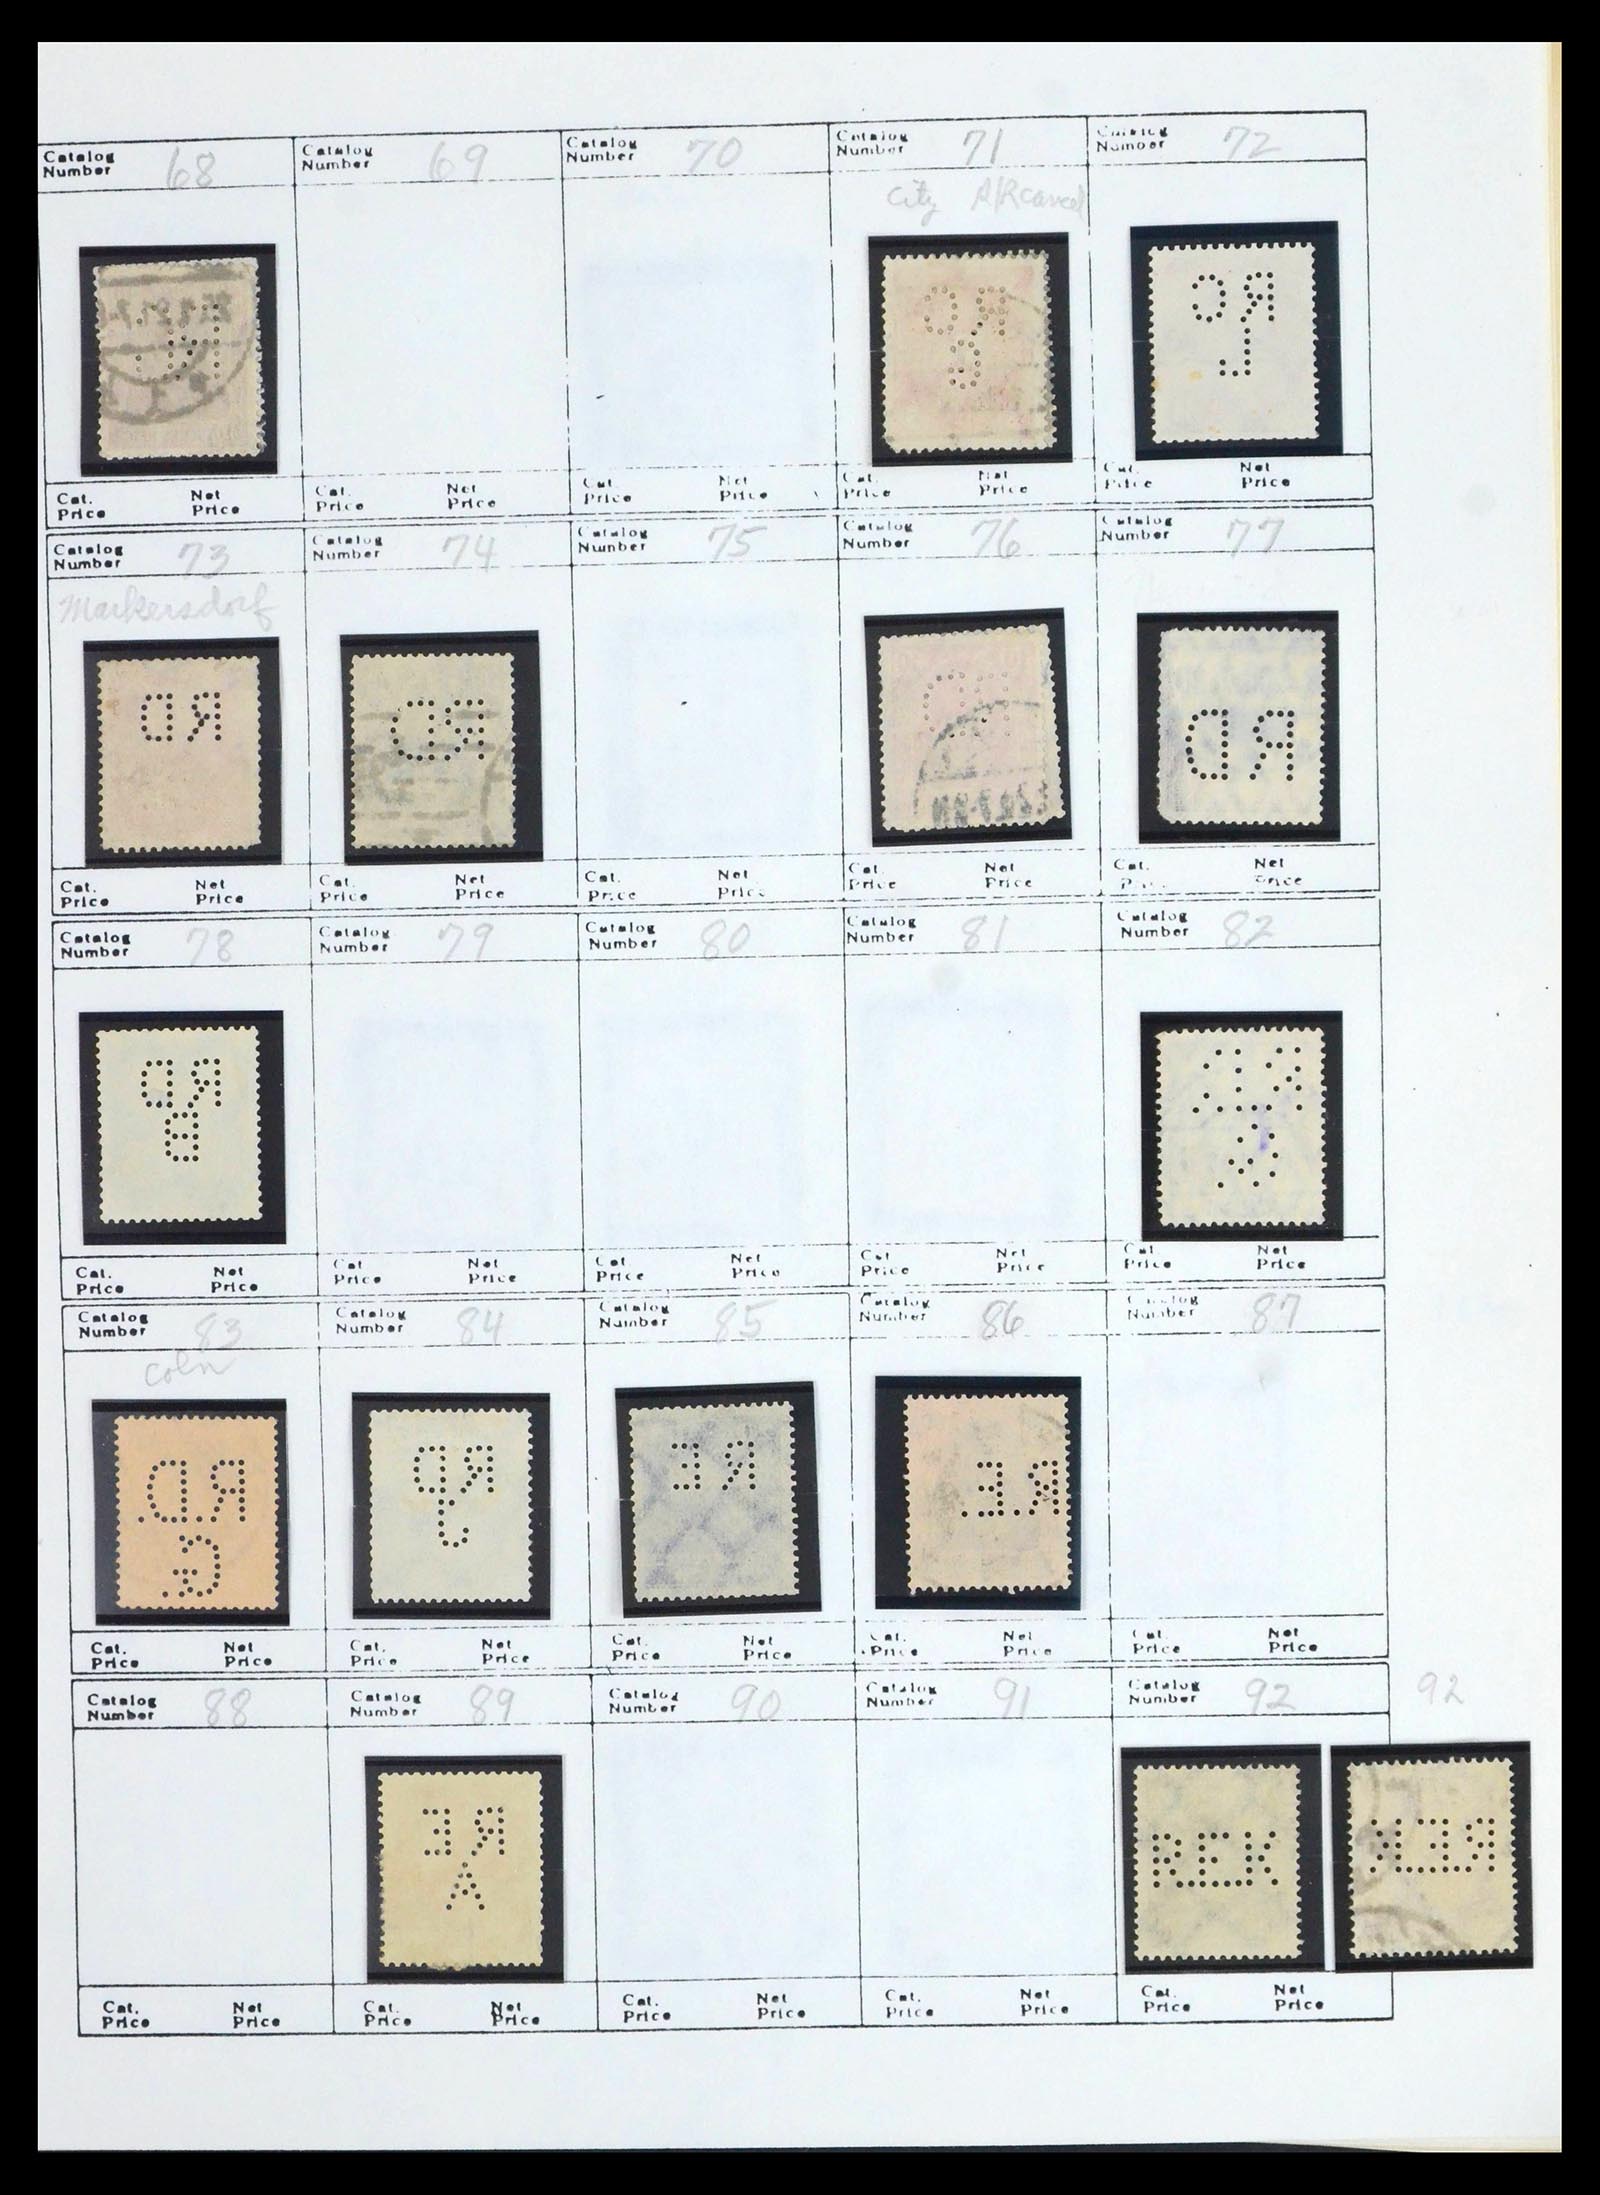 Catalog Number 68 Catalog Number 69 Catalog Number 70 Catalog Number 71 Catalog Number 72
City
RC
RC
L
Cat. Price Net Price Cat. Price Net Price Cat. Price Net Price Cat. Price Net Price Cat. Price Net Price
Catalog Number 73 Catalog Number 74 Catalog Number 75 Catalog Number 76 Catalog Number 77
Markersdorf
RD RD RD RD
Cat. Price Net Price Cat. Price Net Price Cat. Price Net Price Cat. Price Net Price Cat. Price Net Price
Catalog Number 78 Catalog Number 79 Catalog Number 80 Catalog Number 81 Catalog Number 82
RD
B
Cat. Price Net Price Cat. Price Net Price Cat. Price Net Price Cat. Price Net Price Cat. Price Net Price
Catalog Number 83 Catalog Number 84 Catalog Number 85 Catalog Number 86 Catalog Number 87
Coln
R.D. RD RE R.E.
J
Cat. Price Net Price Cat. Price Net Price Cat. Price Net Price Cat. Price Net Price Cat. Price Net Price
Catalog Number 88 Catalog Number 89 Catalog Number 90 Catalog Number 91 Catalog Number 92 92
RE REK REK
A
Cat. Price Net Price Cat. Price Net Price Cat. Price Net Price Cat. Price Net Price Cat. Price Net Price